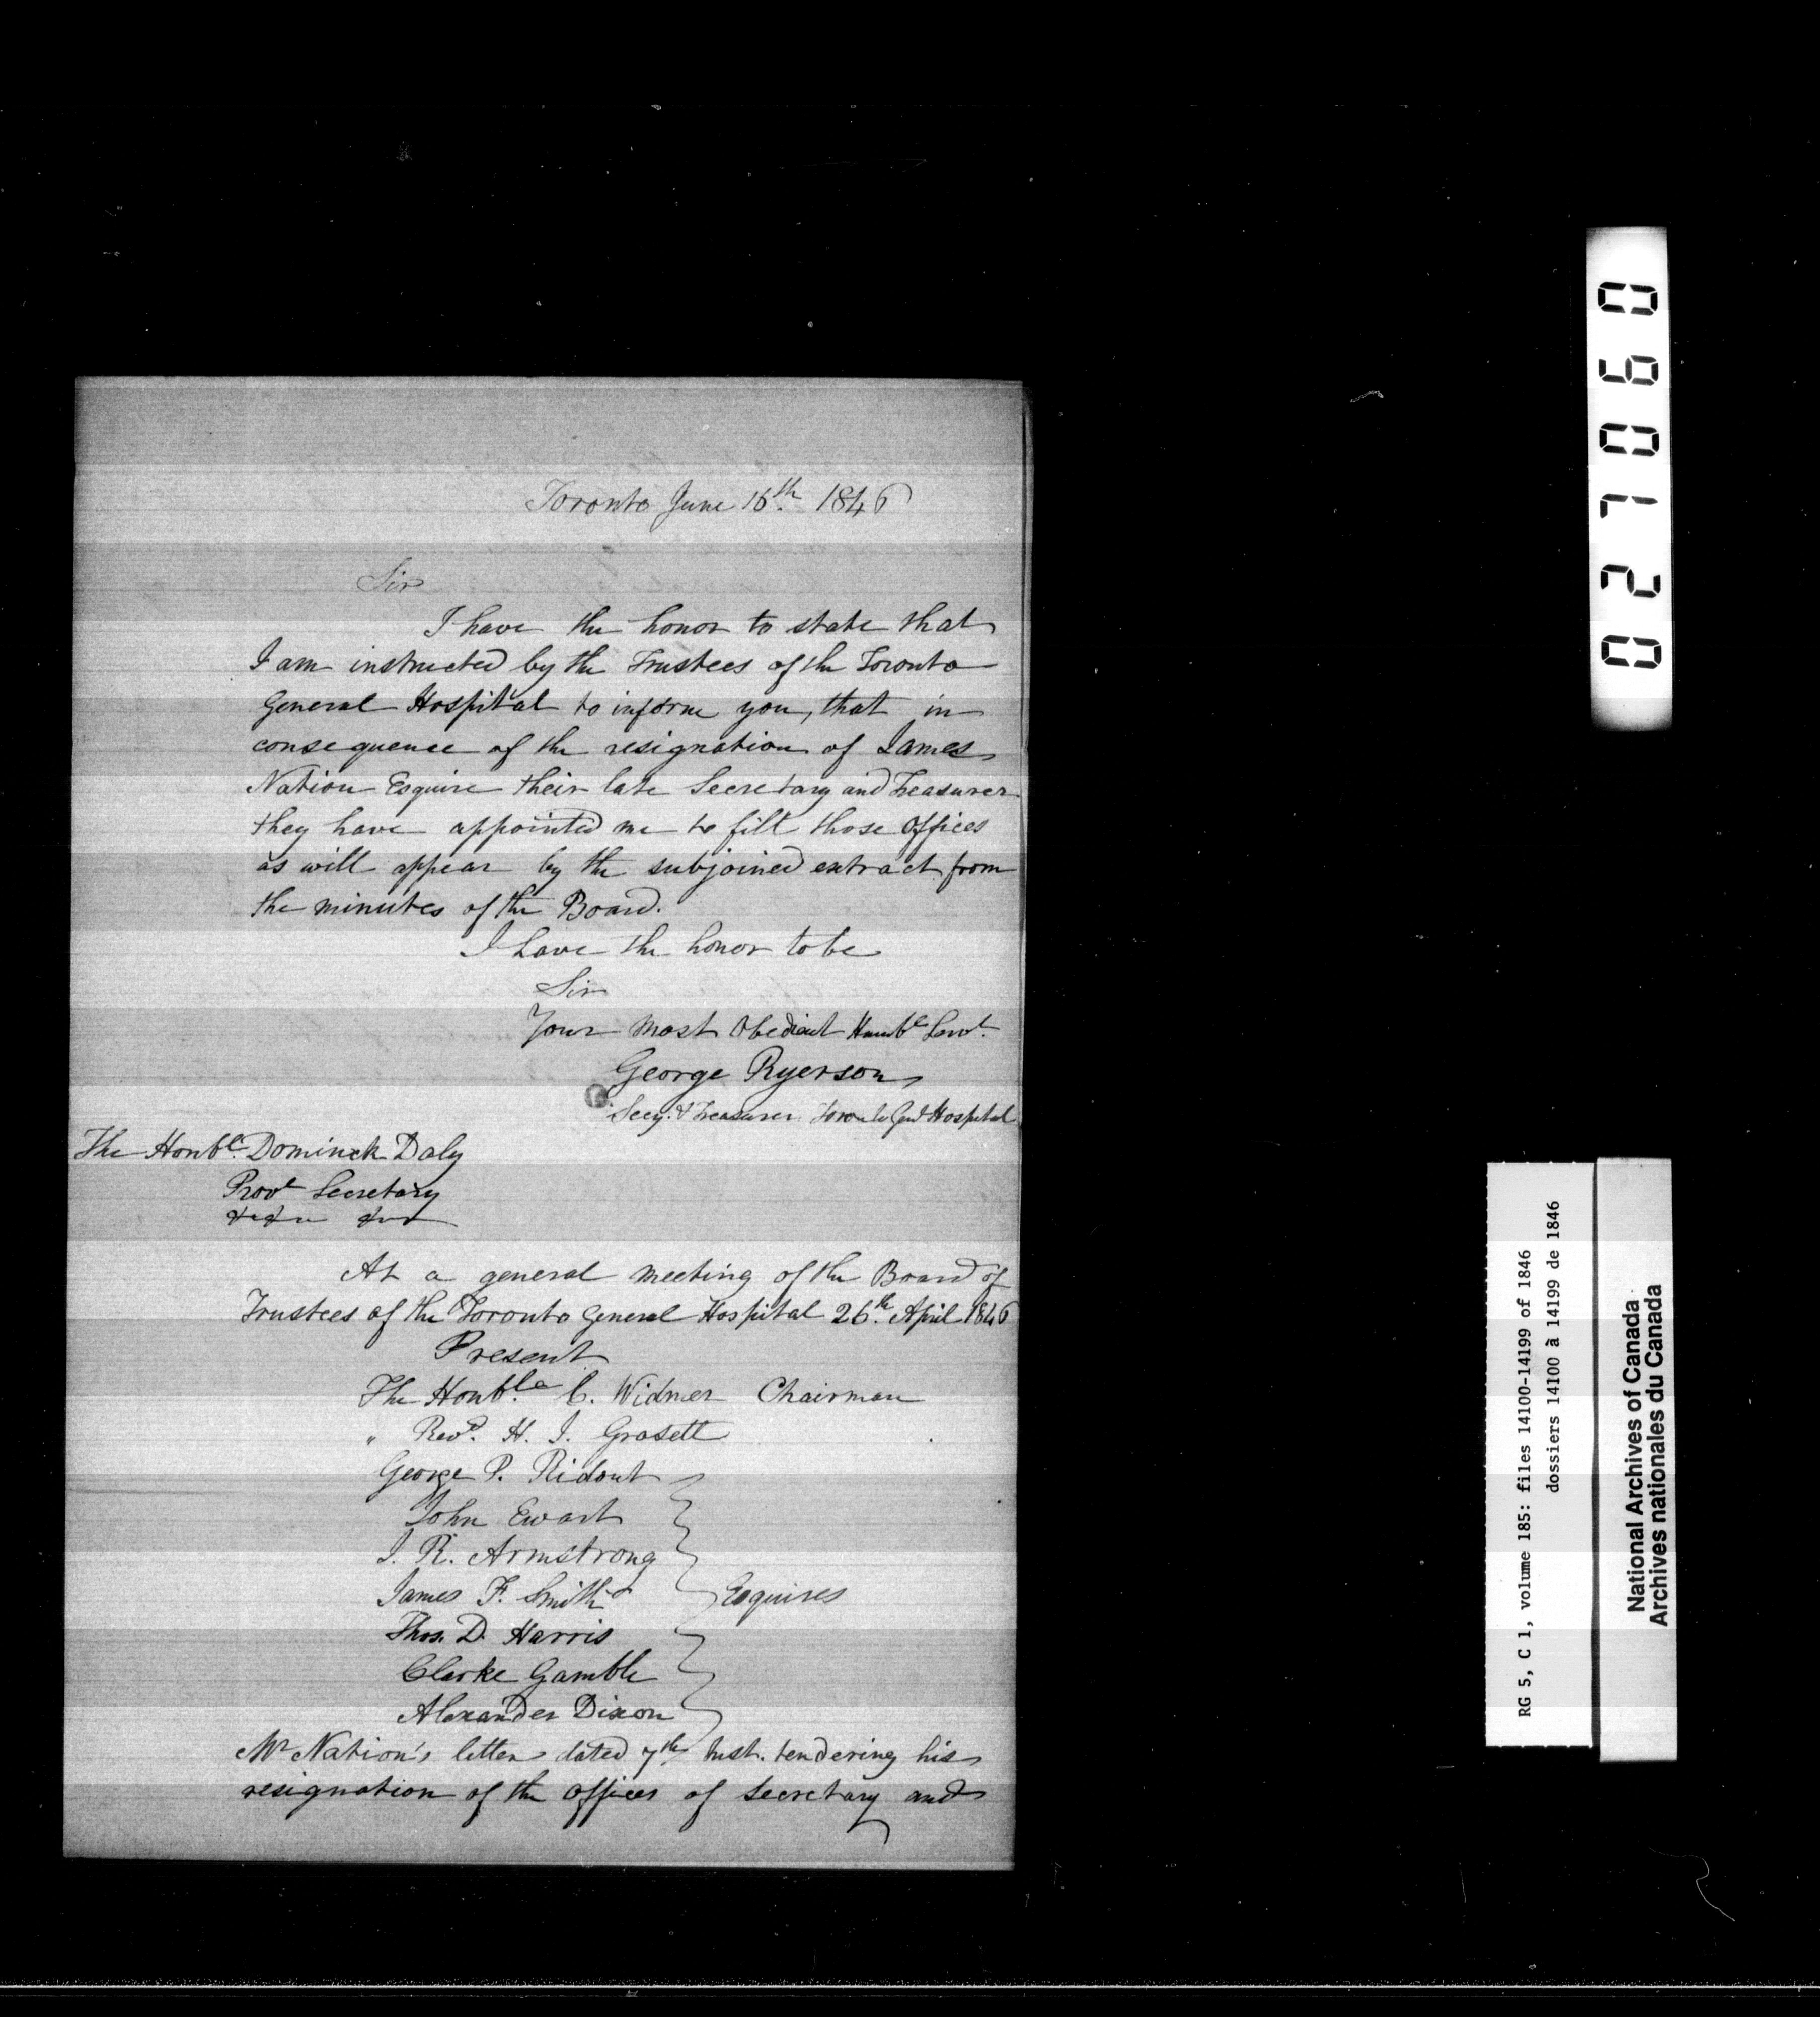 Toronto June 16th. 1846
Sir
I have the honor to state that
I am instructed by the Trustees of the Toronto
General Hospital to inform you, that in
consequence of the resignation of James
Nation Esquire their late Secretary and Treasurer
they have appointed me to fill those offices
as will appear by the subjoined extract from
the minutes of the Board.
I have the honor to be
Sir
Your most Obedient Humbe Servt.
George Ryerson
Secy. & Treasurer Toronto Genl Hospital
The Honble. Dominick Daly
Provl Secretary
&c &c &c
At a general meeting of the Board of
Trustees of the Toronto General Hospital 26th. April 1846
Present
The Honble. C. Widmer Chairman
" Revd. H. J. Grasett
George P. Ridout
John Ewart
J. R. Armstrong
James F. Smith
Esquires
Thos. D. Harris
Clarke Gamble
Alexander Dixon
Mr Nation's letter dated 7th Inst. tendering his
resignation of the offices of Secretary and
027060
RG 5, C 1, volume 185: files 14100-14199 of 1846
dossiers 14100 à 14199 de 1846
National Archives of Canada
Archives nationales du Canada